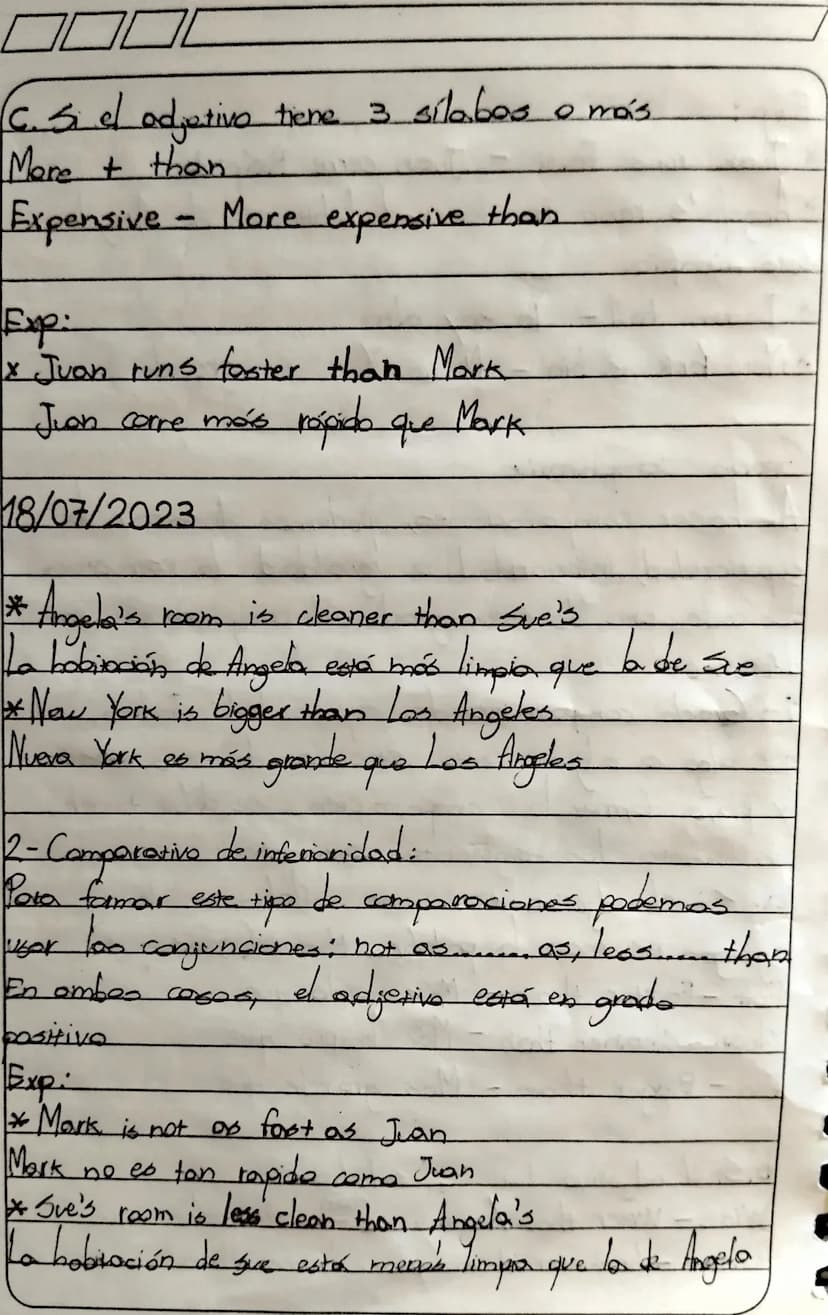 C. Si el adjetivo tiene 3 sílabas o más
More + than
Expensive - More expensive than
Exp:
x Juan runs faster than Mark
Juan corre más rápido que Mark
18/07/2023
* Angela's room is cleaner than Sue's
La habitación de Angela está más limpia que la de Sue
* New York is bigger than Los Angeles
Nueva York es más grande que Los Angeles
2- Comparativo de inferioridad:
Para formar este tipo de comparaciones podemos
usar las conjunciones: not as....... as, less..... than
En ambos casos, el adjetivo está en grado
positivo
Exp:
* Mark is not as fast as Juan
Mark no es tan rapido como Juan
* Sue's room is less clean than Angela's
La habitación de sue está menos limpia que la de Angela